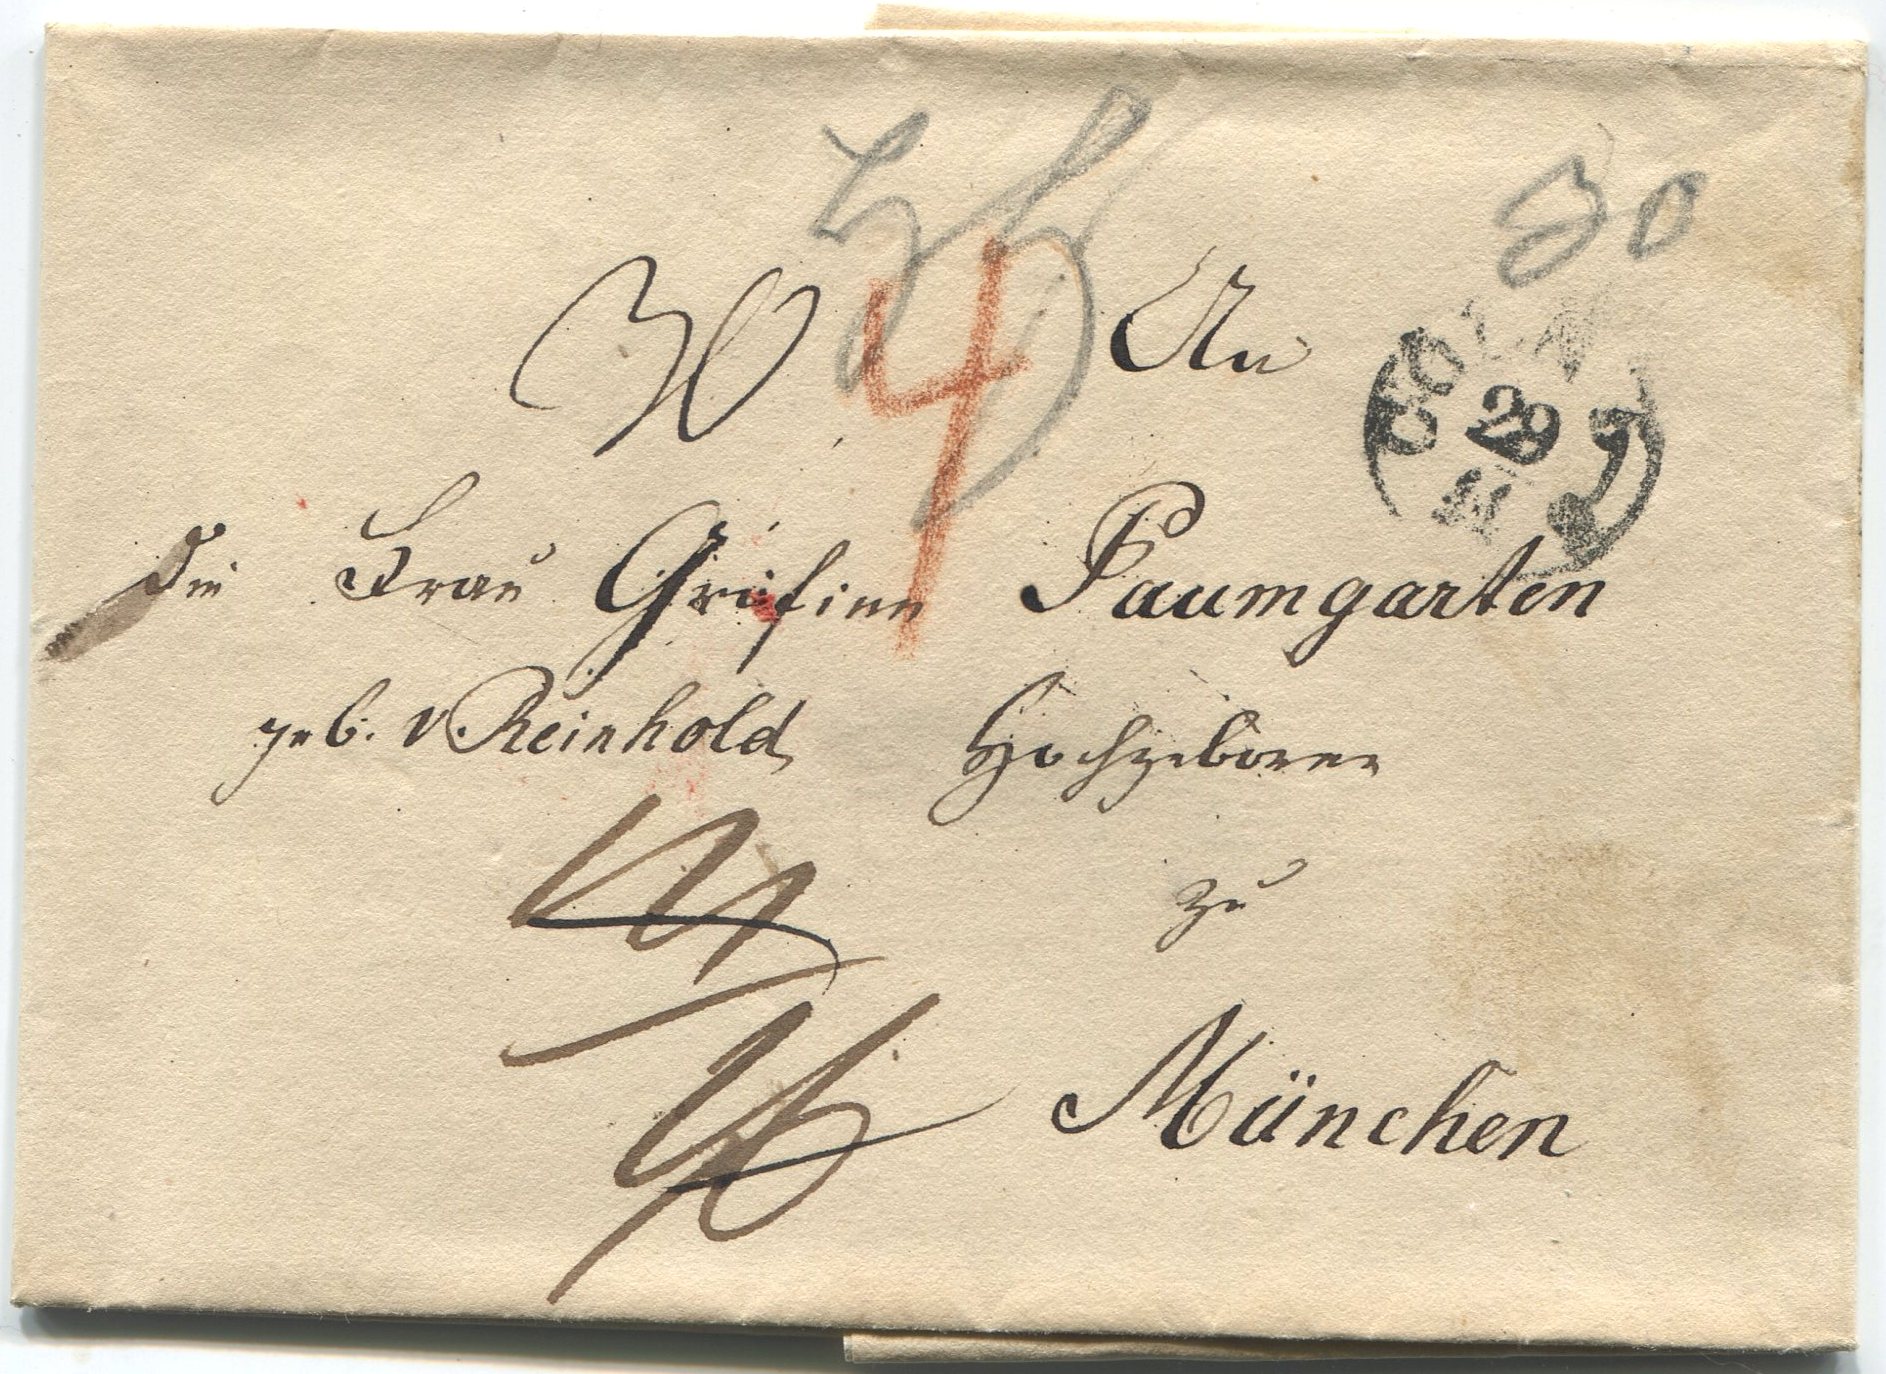 30
30 4 An
COELN
28
11
die Frau Gräfinn Paumgarten
geb. v. Reinhold, Hochgeboren
zu
München